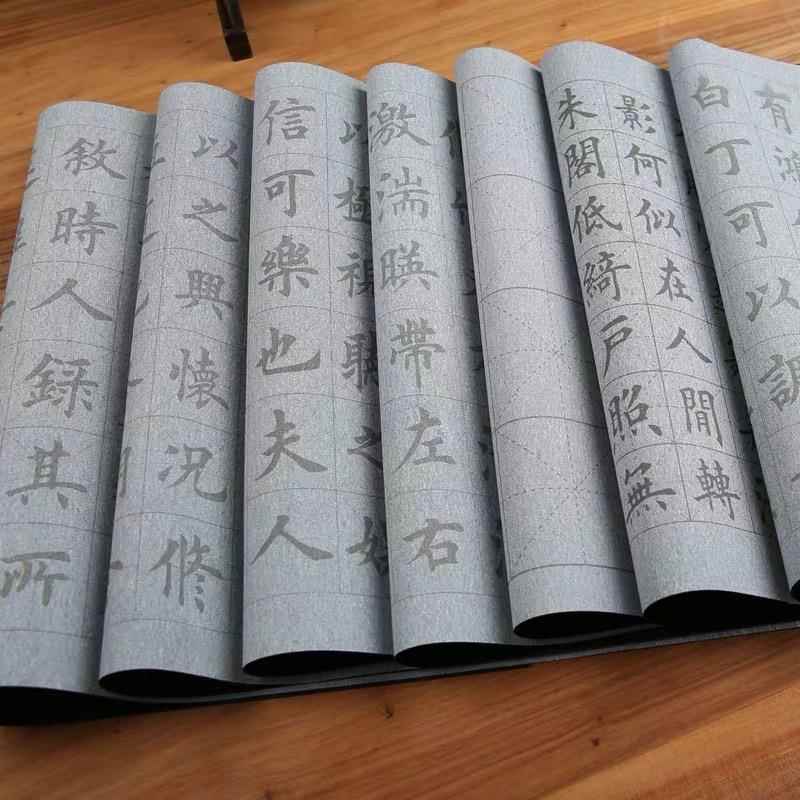 有鴻
白丁可以調
影何似在人間轉
朱閣低綺戶照無
激湍暎帶左右
以極視聽之娛
信可樂也夫人
以之興懷況脩
敘時人錄其所